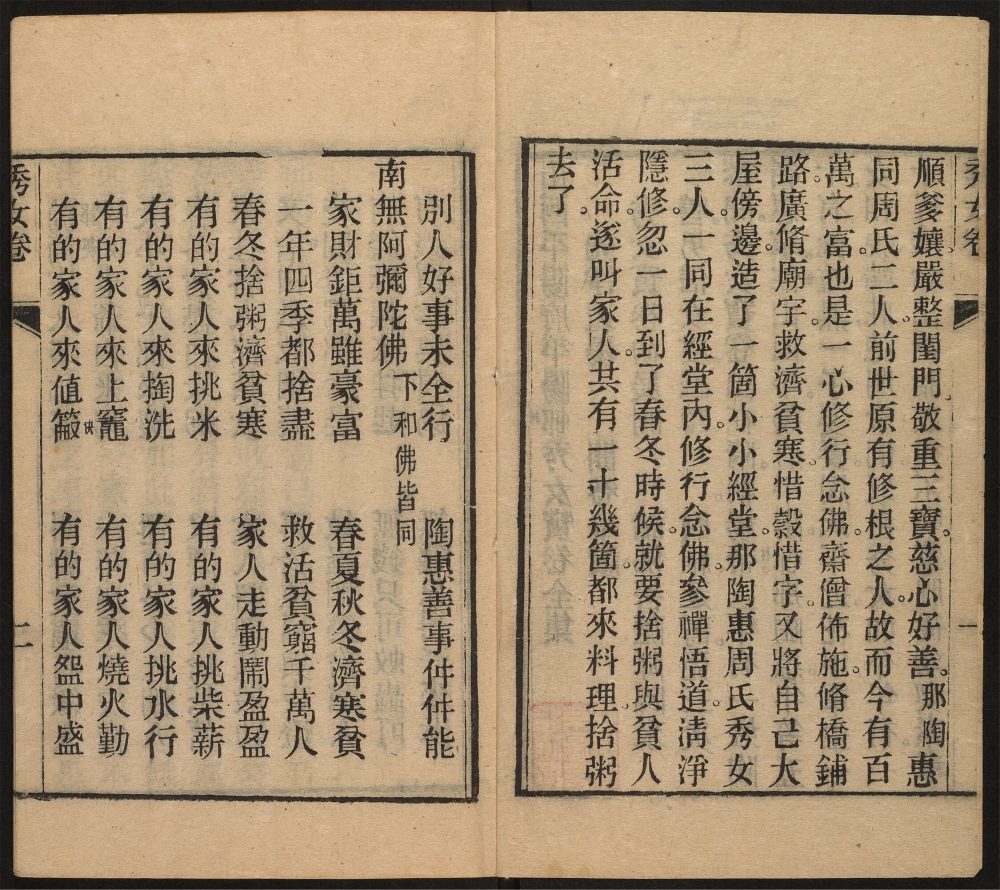 秀女卷
一
順爹孃嚴整閨門敬重三寶慈心好善。那陶惠
同周氏二人前世原有修根之人故而今有百
萬之富也是一心修行念佛齋僧佈施脩橋鋪
路廣脩廟宇救濟貧寒惜穀惜字又將自己大
屋傍邊造了一箇小小經堂那陶惠周氏秀女
三人一同在經堂內修行念佛參禪悟道清淨
隱修忽一日到了春冬時候就要捨粥與貧人
活命逐叫家人共有一十幾箇都來料理捨粥
去了
別人好事未全行 陶惠善事件件能
南無阿彌陀佛 下和佛皆同
家財鉅萬雖豪富 春夏秋冬濟寒貧
一年四季都捨盡 救活貧窮千萬人
春冬捨粥濟貧寒 家人走動鬧盈盈
有的家人來挑米 有的家人挑柴薪
有的家人來掏洗 有的家人挑水行
有的家人來上竈 有的家人燒火勤
有的家人來値 有的家人中盛
秀女卷
二